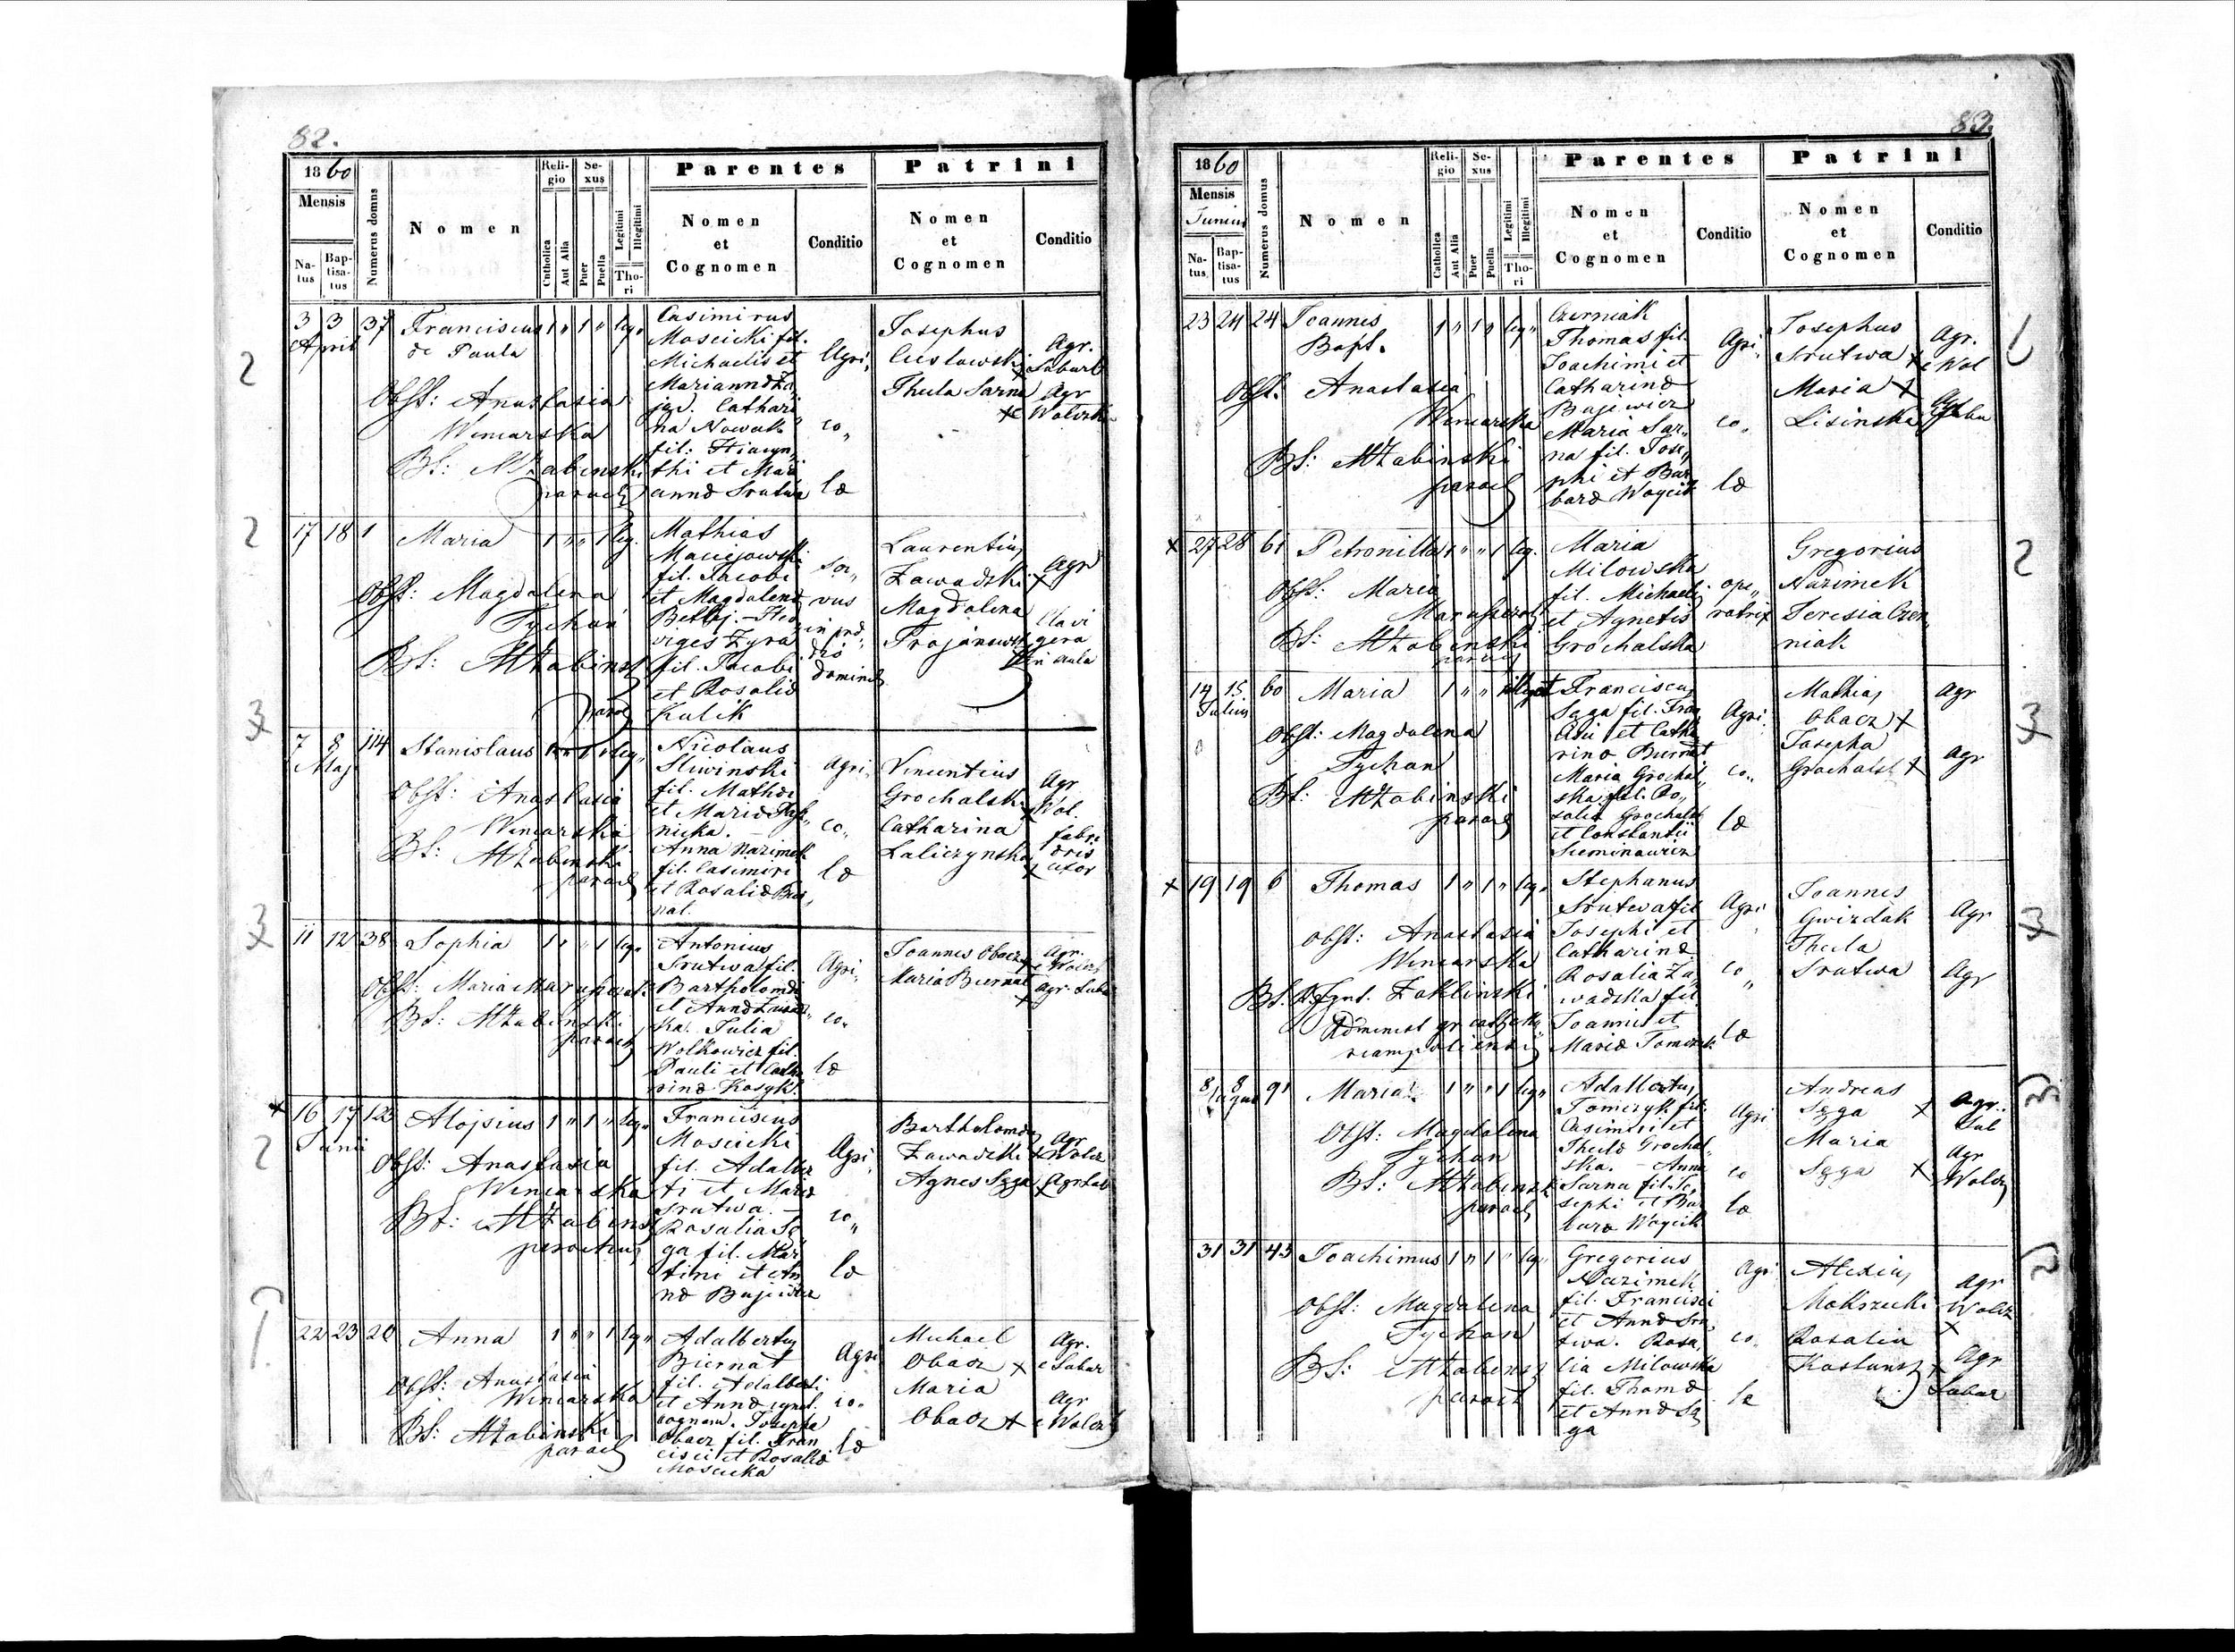 82.
1860
Mensis
Na-
tus
Bap-
tisa-
tus
Numerus domus
Nomen
Reli-
gio
Catholica
Aut Alia
Se-
xus
Puer
Puella
Legitimi
Illegitimi
Tho-
ri
Parentes
Nomen
et
Cognomen
Conditio
Patrini
Nomen
et
Cognomen
Conditio
3 3 37 Franciscus 1 " 1 " leg"
April
de Paula
Obst: Anastasia
Weniarska
Bt: MZabinski
paroch
Casimirus
Moscicki fil.
Michaelis et
Marianna Za
Cathari
na Nowak
fil: Hiacyn
thi et Mari
anna Srutwa
Agri
co"
la
Josephus
Cieslawski
Thecla Sarna
Agr.
Agr
17 18 1 Maria 1 " " 1 leg.
Obst: Magdalena
Tychan
Bt: MZabinski
paroch
Mathias
Maciejowski
fil. Jacobi
et Magdalena
Hed
wiges Zyra
fil. Jacobi
et Rosalia
Kulik
Ser"
vus
in prae
dio
dominic
Laurentius
Zawadzki +
Magdalena
Trojanowska
Agr
Clavi
gera
in aula
7 8 114 Stanislaus 1 " 1 " leg"
Maj
Obst: Anastasia
Weniarska
Bt: MZabinski
paroch
Nicolaus
Sliwinski
fil. Mathae
et Maria
nicka. -
Anna Nazimek
fil. Casimiri
et Rosalia Bier
nat.
Agri
co"
la
Vincentius
Grochalski
Catharina
Laliczynska
Agr
Wol.
fabri
uxor
11 12 38 Sophia 1 " " 1 leg"
Obst: Maria Maruszczak
Bt: MZabinski
paroch
Antonius
Srutwa fil.
Bartholomaei
et Anna Zawadz
ka. Julia
Wolkowicz fil.
Pauli et Catha
rina Kosyk
Agri
co"
la
Joannes Obacz
Maria Biernat
+
Agr.
Agr. Luba
+ 16 17 123 Alojsius 1 " 1 " leg"
Junii
Obst: Anastasia
Weniarska
Bt: MZabinski
parochus
Franciscus
Moscicki
fil. Adalber
ti et Maria
Srutwa. -
Rosalia Są
ga fil. Mar
tini et An
na Bujiwicz
Agri
co"
la
Bartholomaeus
Zawadzki +
Agnes Sąga +
Agr
Wolcz
Agr Lub
22 23 20 Anna 1 " " 1 leg"
Obst: Anastasia
Weniarska
Bt: MZabinski
paroch
Adalbertus
Biernat
fil. Adalberti
et Anna ignot.
cognom. Josepha
Obacz fil. Fran
cisci et Rosalia
Moscicka
Agri
co"
la
Michael
Obacz +
Maria
Obacz +
Agr.
e Lubar
Agr
e Wolcz
2
2
3
3
2
1
83.
1860
Mensis
Junius
Na-
tus
Bap-
tisa-
tus
Numerus domus
Nomen
Reli-
gio
Catholica
Aut Alia
Se-
xus
Puer
Puella
Legitimi
Illegitimi
Tho-
ri
Parentes
Nomen
et
Cognomen
Conditio
Patrini
Nomen
et
Cognomen
Conditio
23 24 24 Joannes 1 " 1 " leg"
Bapt.
Obst. Anastasia
Weniarska
Bt: MZabinski
paroch
Czerniak
Thomas fil.
Joachimi et
Catharina
Bujiwicz
Maria Sar"
na fil. Jose
phi et Bar
bara Woycik
Agri
co"
la
Josephus
Srutwa +
Maria +
Lisinska
Agr.
e Wol
Agr
+ 27 28 61 Petronilla 1 " " 1 leg.
Obst: Maria
Maruszczak
Bt: MZabinski
paroch
Maria
Milowska
fil. Michaelis
et Agnetis
Grochalska
ope"
ratrix
Gregorius
Nazimek
Teresia Czer
niak
14 15 60 Maria 1 " "
Julius
Obst: Magdalena
Tychan
Bt: MZabinski
paroch
Franciscus
Sąga fil. Fran
cisci et Catha
rina Biernat
Maria Grochal
ska fil. Ro"
salia Grochalska
et Constantii
Sieminowicz
Agri
co"
la
Mathias
Obacz +
Josepha
Grochalsk +
Agr
Agr
+ 19 19 6 Thomas 1 " 1 " leg"
Obst: Anastasia
Weniarska
Bt. Ignt. Zoklinski
Administ gr cath
Stephanus
Srutwa fil
Josephi et
Catharina
Rosalia Za
wadska fil
Joannis et
Maria Tomczyk
Agri
co"
la
Joannes
Gwizdak
Thecla
Srutwa
Agr
Agr
8 8 91 Maria 1 " " 1 leg"
August
Obst: Magdalena
Tychan
Bt: MZabinski
paroch
Adalbertus
Tomczyk fil.
Casimiri et
Thecla Grochal
ska. - Anna
Sarna fil. Jo
sephi et Bar
bara Woycik
Agri
co
la
Andreas
Sąga +
Maria
Sąga +
Agr.
Lub
Agr
Wolcz
31 31 43 Joachimus 1 " 1 " leg"
Obst: Magdalena
Tychan
Bt: MZabinski
paroch
Gregorius
Nazimek
fil. Francisci
et Anna Sru
twa. Rosa
lia Milowska
fil. Thoma
et Anna Są
ga
Agri
co"
la
Alexius
Mokszecki
Rosalia
Kostunsz
Agr
Wolcz
+
Agr
Lubar
2
3
3
3
2